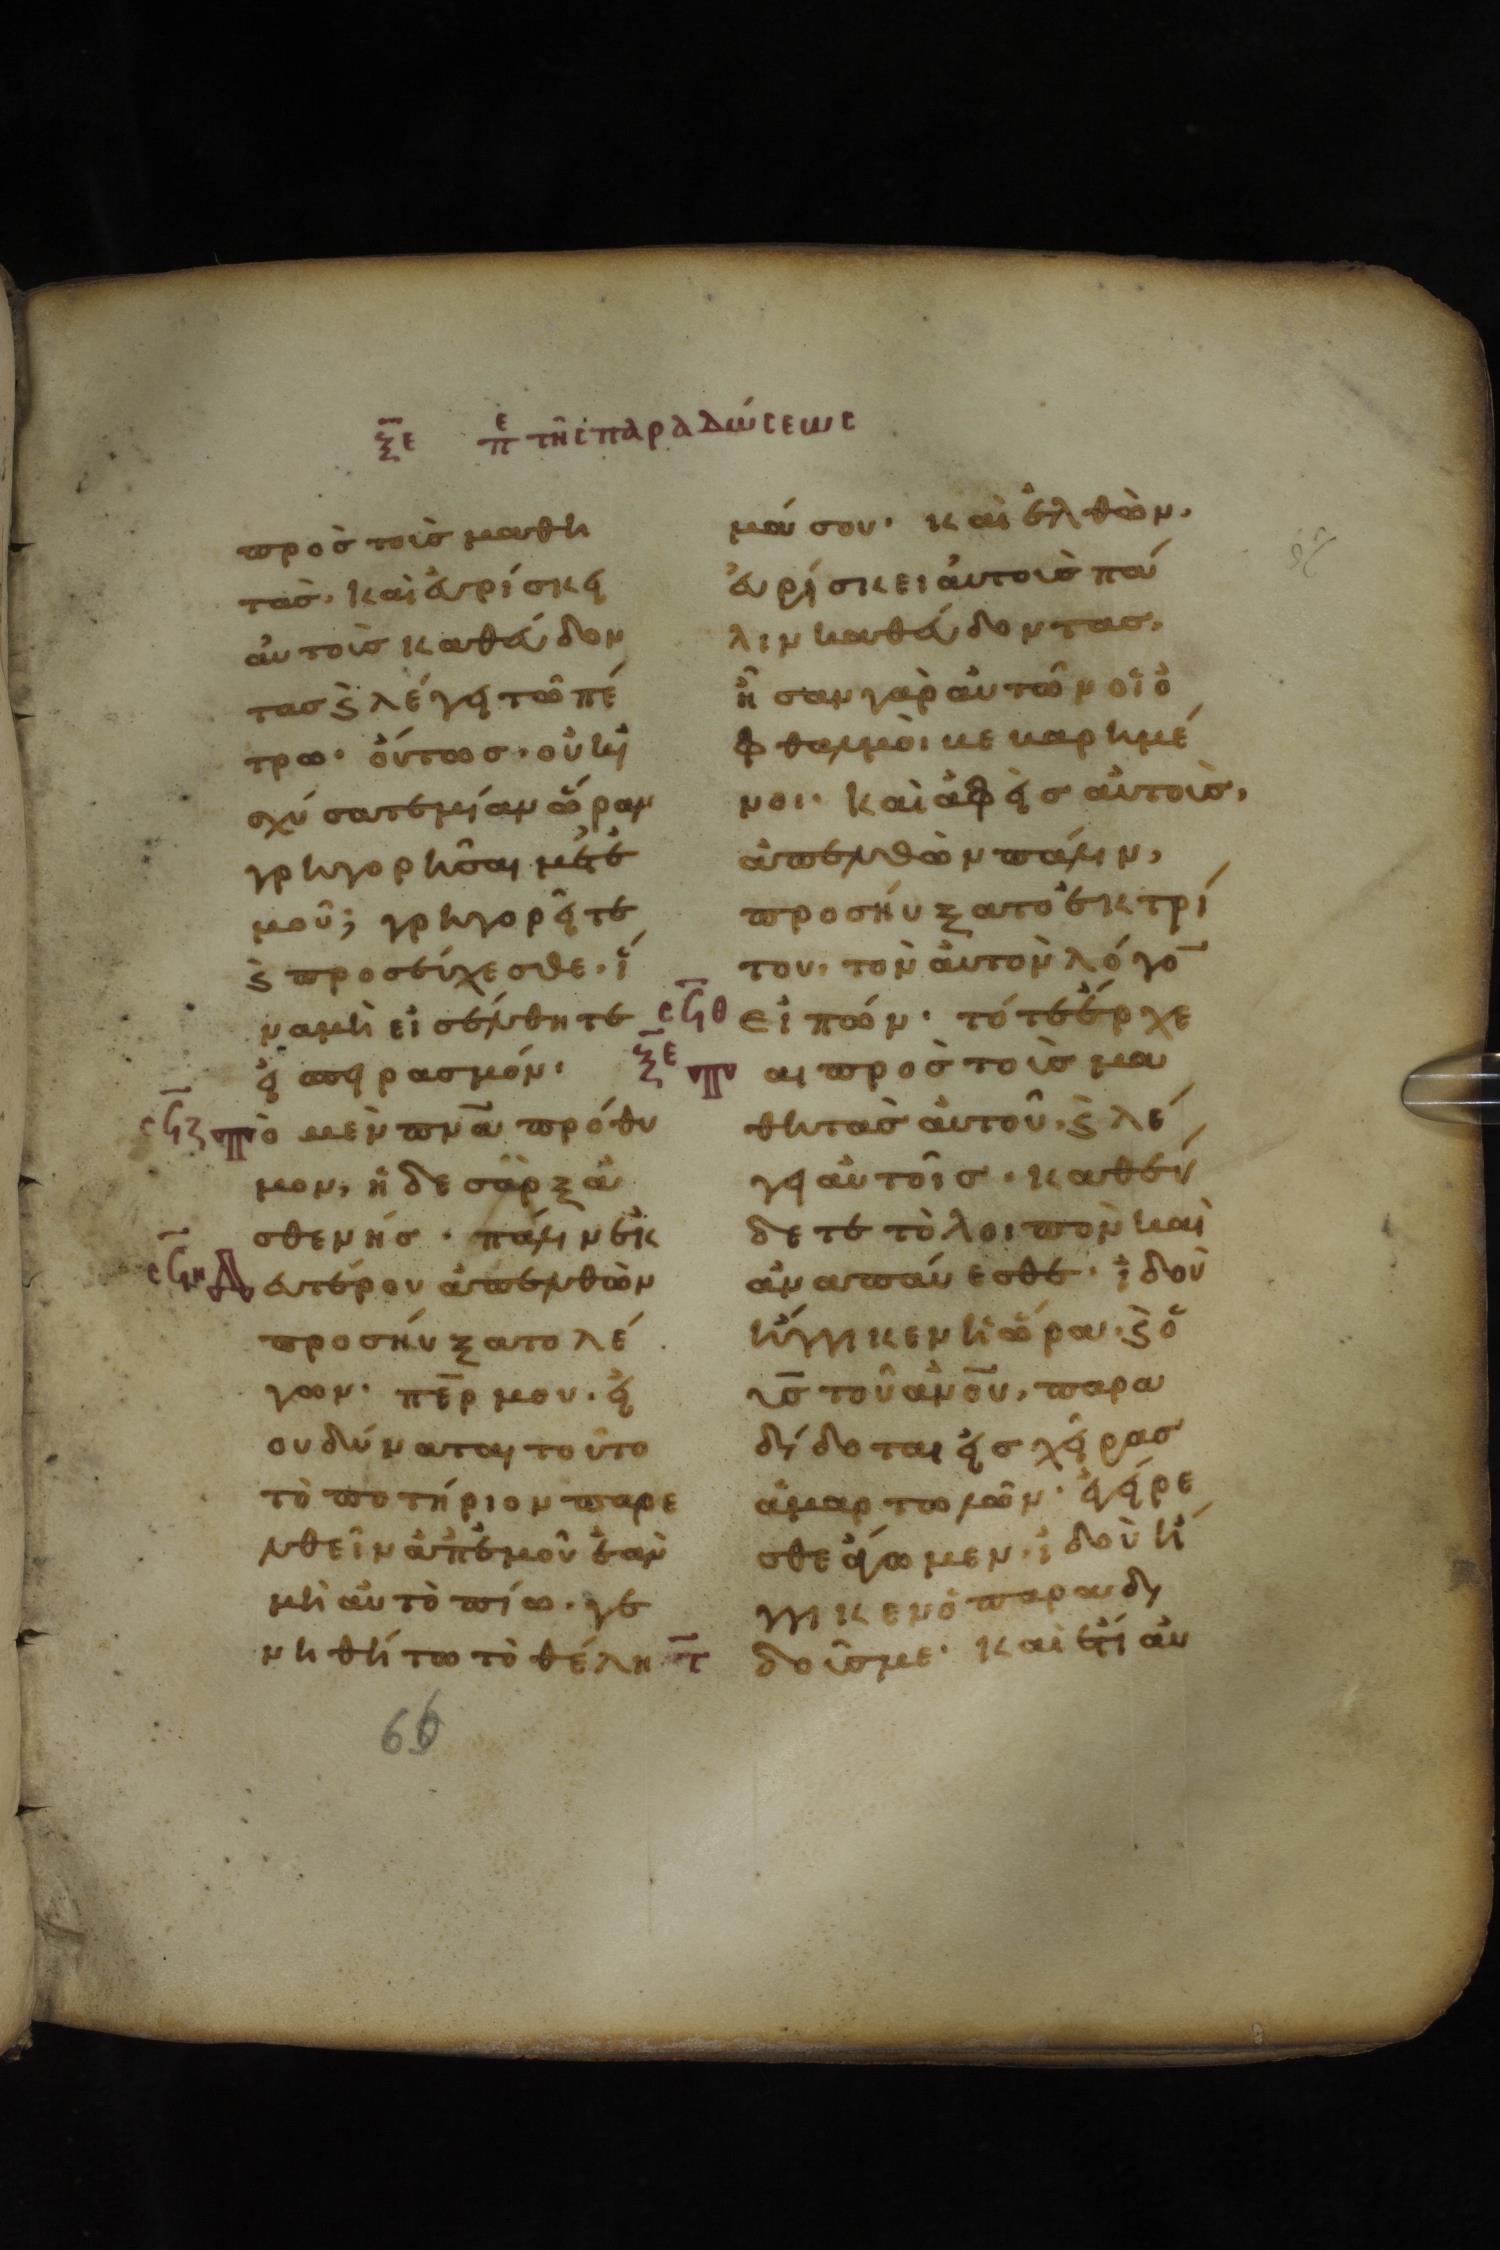 ξε πε τῆς παραδώσεως
προς τοὺς μαθη
τὰς· καὶ εὑρίσκει
αὐτοὺς καθεύδον
τας ϗ λέγει τῶ πέ
τρω· οὕτως· οὐκ ἰ
σχύσατε μίαν ὥραν
γρηγορῆσαι μετ' ἐ
μοῦ; γρηγορεῖτε
ϗ προσεύχεσθε· ἵ
να μὴ εἰσέλθητε
εἰ πειρασμόν·
σϟζ τὸ μὲν πνα πρόθυ
μον, ἡ δε σὰρξ ἀ
σθενής· πάλιν ἐκ
σϟη δευτέρου ἀπελθὼν
προσηύξατο λέ
γων· περ μου· εἰ
ου δύναται τοῦτο
τὸ ποτήριον παρε
λθεῖν ἀπ' ἐμοῦ ἐὰν
μὴ αὐτὸ πίω· γε
νηθήτω τὸ θέλη
μά σου· καὶ ἐλθὼν,
εὑρίσκει αὐτοὺς πά
λιν καθεύδοντας,
ἦσαν γὰρ αὐτῶν οἱ ὀ
φθαλμοὶ κεκαρημέ
νοι· καὶ ἀφεὶς αὐτοὺς,
ἀπελθὼν πάλιν,
προσηύξατο ἐκ τρί
του, τὸν αὐτὸν λόγο̅
σϟθ εἰπών· τότε ἔρχε
ξε ται πρὸς τοὺς μα
θητὰς αὐτοῦ, ϗ λέ
γει αὐτοῖς· καθεύ
δετε τὸ λοιπὸν καὶ
ἀναπαύεσθε· ἰδοὺ
ἤγγικεν ἡ ὥρα· ϗ ὁ
υς τοῦ ανου, παρα
δίδοται εἰς χεῖρας
ἁμαρτωλῶν· ἐγείρε
σθε ἄγωμεν· ἰδοὺ ἤ
γγικεν ὁ παραδι
τ δούς με· καὶ ἔτι αὐ
66